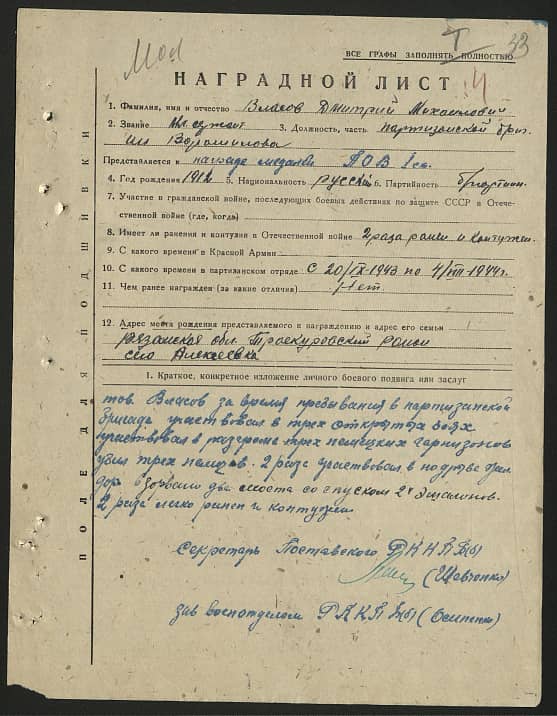 33
ВСЕ ГРАФЫ ЗАПОЛНЯТЬ ПОЛНОСТЬЮ
НАГРАДНОЙ ЛИСТ
1. Фамилия, имя и отчество Власов Дмитрий Михайлович
2. Звание Мл сержант 3. Должность, часть партизанской бриг.
им Ворошилова
Представляется к награде медалью ПОВ I ст.
4. Год рождения 1912 5. Национальность русский 6. Партийность б/партийн.
7. Участие в гражданской войне, последующих боевых действиях по защите СССР в Отече-
ственной войне (где, когда)
8. Имеет ли ранения и контузии в Отечественной войне 2 раза ранен и контужен.
9. С какого времени в Красной Армии
10. С какого времени в партизанском отряде с 20/IX-1943 по 4/VII-1944г.
11. Чем ранее награжден (за какие отличия) Нет
12. Адрес места рождения представляемого к награждению и адрес его семьи
Рязанская обл. Троекуровский район
село Алексеевка
1. Краткое, конкретное изложение личного боевого подвига или заслуг
тов. Власов за время пребывания в партизанской
бригаде участвовал в трех открытых боях
участвовал в разгроме трех немецких гарнизонов
убил трех немцев. 2 раза участвовал в подрыве
взорвали два моста со спуском 2х эшалонов.
2 раза легко ранен и контужен
Секретарь Поставского РК КП(б)Б
(Шевченко)
зав военотделом РК КП(б)Б (Осипенко)
ПОЛЕ ДЛЯ ПОДШИВКИ